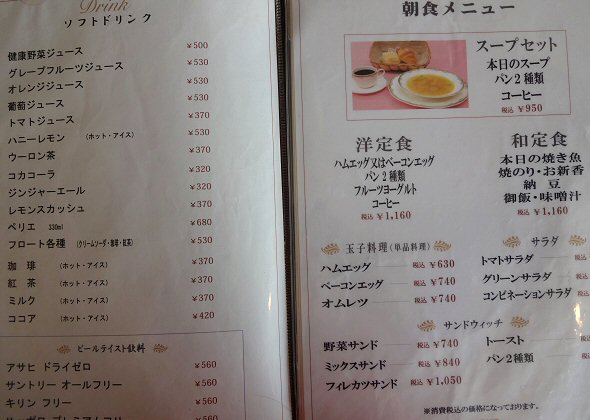 Drink
ソフトドリンク
健康野菜ジュース ¥500
グレープフルーツジュース ¥530
オレンジジュース ¥530
葡萄ジュース ¥530
トマトジュース ¥370
ハニーレモン (ホット・アイス) ¥530
ウーロン茶 ¥370
コカコーラ ¥320
ジンジャーエール ¥320
レモンスカッシュ ¥370
ペリエ 330ml ¥680
フロート各種 (クリームソーダ・珈琲・紅茶) ¥530
珈琲 (ホット・アイス) ¥370
紅茶 (ホット・アイス) ¥370
ミルク (ホット・アイス) ¥370
ココア (ホット・アイス) ¥420
ビールテイスト飲料
アサヒ ドライゼロ ¥560
サントリー オールフリー ¥560
キリン フリー ¥560
サッポロ プレミアムフリー ¥560
朝食メニュー
スープセット
本日のスープ
パン2種類
コーヒー
税込 ¥950
洋定食
ハムエッグ又はベーコンエッグ
パン2種類
フルーツヨーグルト
コーヒー
税込 ¥1,160
和定食
本日の焼き魚
焼のり・お新香
納豆
御飯・味噌汁
税込 ¥1,160
玉子料理(単品料理)
ハムエッグ 税込 ¥630
ベーコンエッグ 税込 ¥740
オムレツ 税込 ¥740
サラダ
トマトサラダ 税込
グリーンサラダ 税込
コンビネーションサラダ 税込
サンドウィッチ
野菜サンド 税込 ¥740
ミックスサンド 税込 ¥840
フィレカツサンド 税込 ¥1,050
トースト 税込
パン2種類 税込
※消費税込の価格になっております。